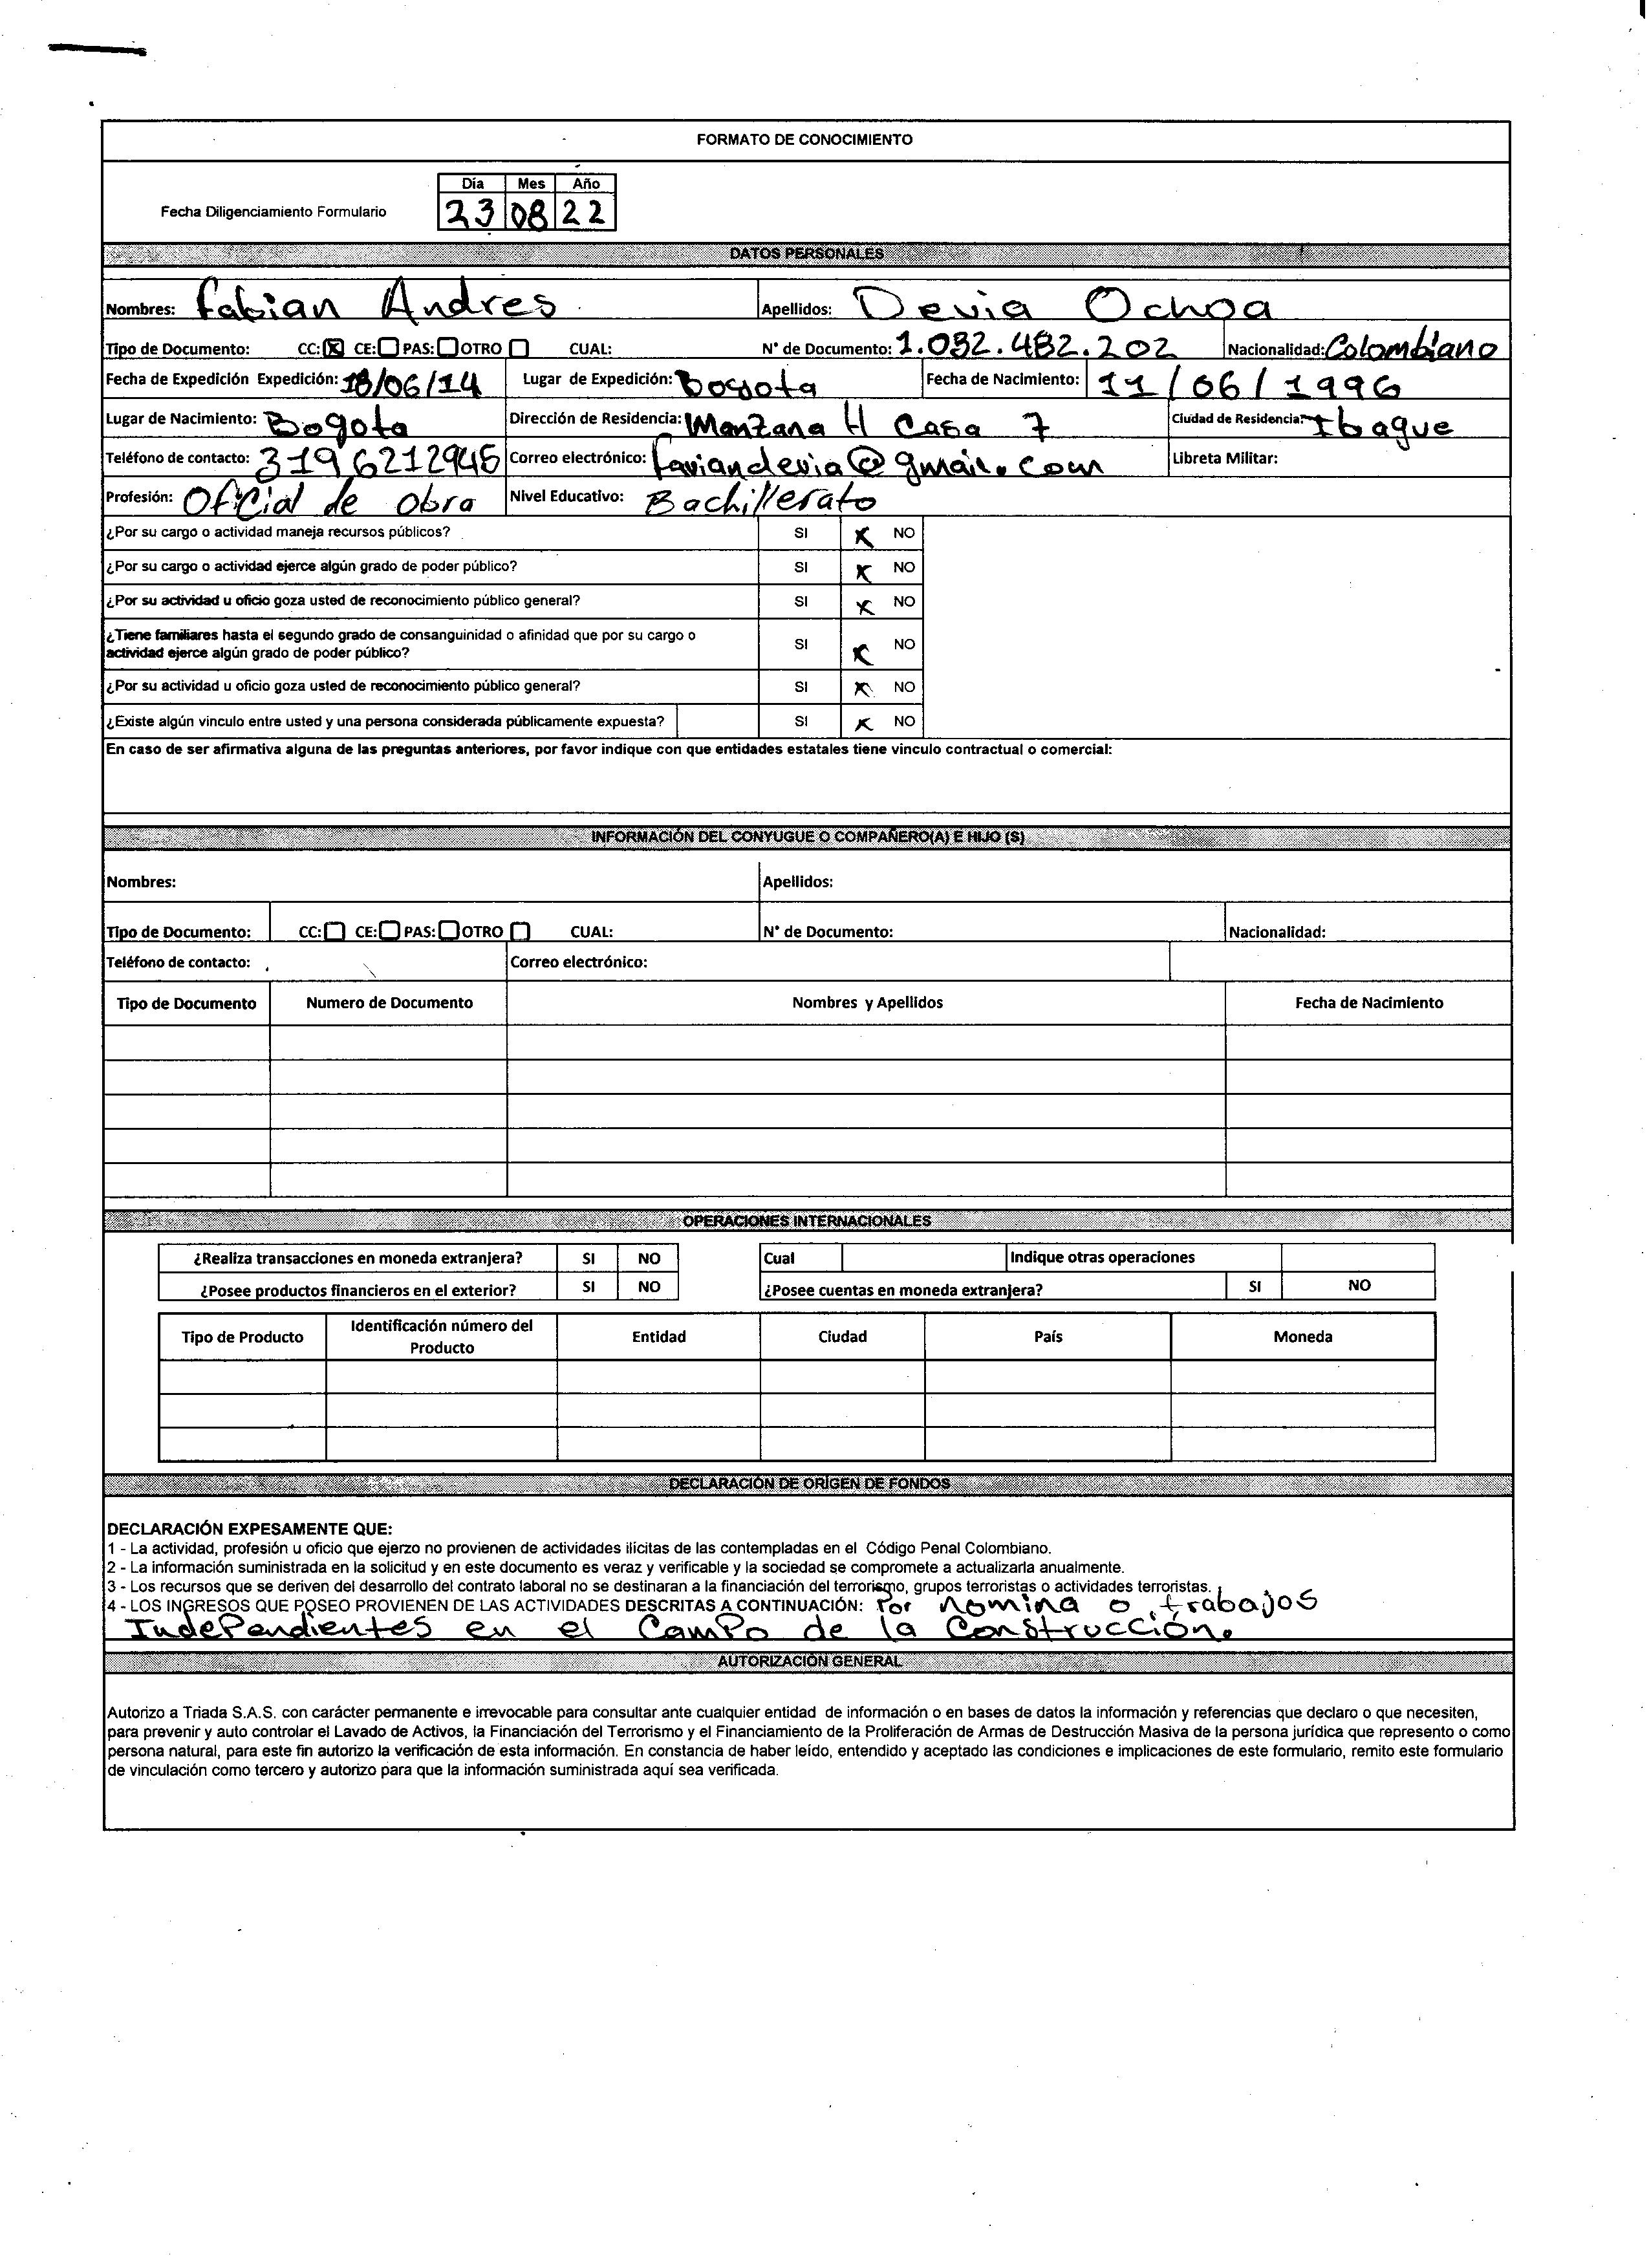 FORMATO DE CONOCIMIENTO
Día Mes Año
Fecha Diligenciamiento Formulario 23 08 22
DATOS PERSONALES
Nombres: Fabian Andres Apellidos: Devia Ochoa
Tipo de Documento: CC: X CE: PAS: OTRO CUAL: N° de Documento: 1.032.482.202 Nacionalidad: Colombiano
Fecha de Expedición Expedición: 18/06/14 Lugar de Expedición: Bogota Fecha de Nacimiento: 11/06/1996
Lugar de Nacimiento: Bogota Dirección de Residencia: Manzana H Casa 7 Ciudad de Residencia: Ibague
Teléfono de contacto: 3196212945 Correo electrónico: faviandevia@gmail.com Libreta Militar:
Profesión: Oficial de obra Nivel Educativo: Bachillerato
¿Por su cargo o actividad maneja recursos públicos? SI X NO
¿Por su cargo o actividad ejerce algún grado de poder público? SI X NO
¿Por su actividad u oficio goza usted de reconocimiento público general? SI X NO
¿Tiene familiares hasta el segundo grado de consanguinidad o afinidad que por su cargo o
actividad ejerce algún grado de poder público? SI X NO
¿Por su actividad u oficio goza usted de reconocimiento público general? SI X NO
¿Existe algún vinculo entre usted y una persona considerada públicamente expuesta? SI X NO
En caso de ser afirmativa alguna de las preguntas anteriores, por favor indique con que entidades estatales tiene vinculo contractual o comercial:
INFORMACIÓN DEL CONYUGUE O COMPAÑERO(A) E HIJO (S)
Nombres: Apellidos:
Tipo de Documento: CC: CE: PAS: OTRO CUAL: N° de Documento: Nacionalidad:
Teléfono de contacto: Correo electrónico:
Tipo de Documento Numero de Documento Nombres y Apellidos Fecha de Nacimiento
OPERACIONES INTERNACIONALES
¿Realiza transacciones en moneda extranjera? SI NO Cual Indique otras operaciones
¿Posee productos financieros en el exterior? SI NO ¿Posee cuentas en moneda extranjera? SI NO
Tipo de Producto Identificación número del Producto Entidad Ciudad País Moneda
DECLARACIÓN DE ORÍGEN DE FONDOS
DECLARACIÓN EXPESAMENTE QUE:
1 - La actividad, profesión u oficio que ejerzo no provienen de actividades ilícitas de las contempladas en el Código Penal Colombiano.
2 - La información suministrada en la solicitud y en este documento es veraz y verificable y la sociedad se compromete a actualizarla anualmente.
3 - Los recursos que se deriven del desarrollo del contrato laboral no se destinaran a la financiación del terrorismo, grupos terroristas o actividades terroristas.
4 - LOS INGRESOS QUE POSEO PROVIENEN DE LAS ACTIVIDADES DESCRITAS A CONTINUACIÓN: Por nomina o trabajos
Independientes en el Campo de la Construcción.
AUTORIZACIÓN GENERAL
Autorizo a Triada S.A.S. con carácter permanente e irrevocable para consultar ante cualquier entidad de información o en bases de datos la información y referencias que declaro o que necesiten,
para prevenir y auto controlar el Lavado de Activos, la Financiación del Terrorismo y el Financiamiento de la Proliferación de Armas de Destrucción Masiva de la persona jurídica que represento o como
persona natural, para este fin autorizo la verificación de esta información. En constancia de haber leído, entendido y aceptado las condiciones e implicaciones de este formulario, remito este formulario
de vinculación como tercero y autorizo para que la información suministrada aquí sea verificada.